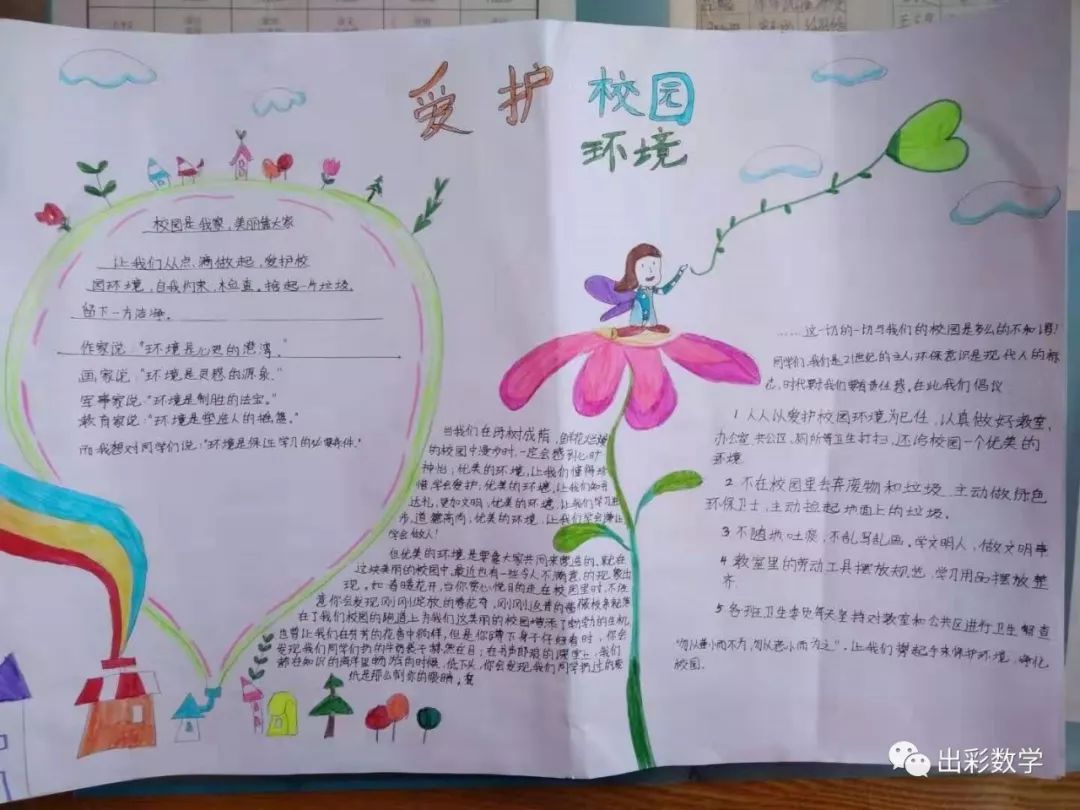 爱护校园
环境
校园是我家,美丽靠大家
让我们从点、滴做起,爱护校
园环境,自我约束,检查。拾起一片垃圾
留下一方洁净。
作家说:"环境是心灵的澄清。"
画家说:"环境是灵感的源泉."
军事家说:"环境是制胜的法宝."
教育家说:"环境是塑造人的摇篮."
而我想对同学们说:"环境是保证学习的必要条件."
当我们在两树成荫,鲜花烂漫
的校园中漫步时,一定会感到心旷
神怡;优美的环境,让我们懂得珍
惜学会爱护;优美的环境,让我们知书
达礼,更加文明;优美的环境,让我们学习进
步,道德高尚;优美的环境,让我们学会谦让
学会做人!
但优美的环境是要靠大家共同来营造的。就在
这块美丽的校园中,最近也有一些令人不满意的现象出
现。如:春暖花开,当你赏心悦目的走在校园里时,不经
意你会发现刚刚绽放的春花奇,刚刚返青的
在了我们校园的跑道上为我们这美丽的校园增添了勃勃的生机,
也曾让我们在芬芳的花香中徜徉,但是你蹲下身子仔细看时,你会
发现我们同学们扔的牛奶袋子赫然在目;在书声琅琅的课堂上,我们
都在知识的海洋里的放向时候,低下头,你会发现我们同学扔过的废
纸是那么刺你的眼睛。看
……这一切的一切与我们的校园是多么的不和谐!
同学们,我们是21世纪的主人环保意识是现代人的标
志,时代要求我们要有责任感。在此我们倡议
1 人人以爱护校园环境为己任,认真做好教室,
办公室,公共区,厕所等卫生打扫,还给校园一个优美的
环境
2 不在校园里丢弃废物和垃圾 主动做绿色
环保卫士,主动捡起地面上的垃圾.
3 不随地吐痰,不乱写乱画。学文明人,做文明事
4 教室里的劳动工具摆放规范,学习用品摆放整
齐
5 各班卫生委员每天坚持对教室和公共区进行卫生督查
"勿以善小而不为,勿以恶小而为之"。让我们携起手来保护环境,净化
校园.
出彩数学